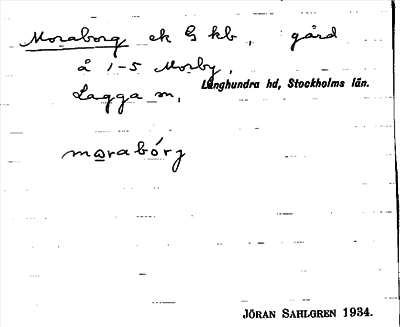 Moraborg ek G kb, gård
å 1-5 Morby,
Långhundra hd, Stockholms län.
Lagga sn,
morabórg
JÖRAN SAHLGREN 1934.